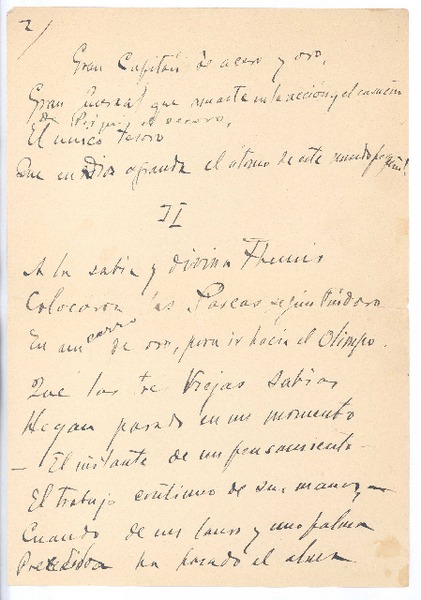 2/
Gran Capitán de acero y oro,
Gran General que amaste en la acción y el
El único tesoro
Que en Dios agranda el átomo de este mundo
II
A la sabia y divina Themis
Colocaron las Parcas según Píndaro
En un carro de oro, para ir hacia el Olimpo.
Que las tre Viejas sabias
Hayan parado en un momento
— El instante de un pensamiento —
El trabajo continuo de sus manos, —
Cuando de un lauro y una palma
Precedida ha pasado el alma